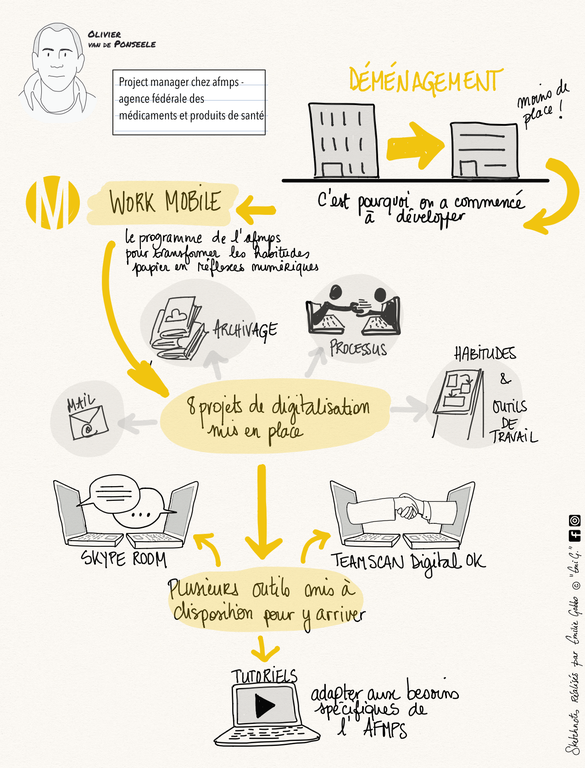 OLIVIER
VAN DE PONSEELE
Project manager chez afmps -
agence fédérale des
médicaments et produits de santé
DÉMÉNAGEMENT
moins de
place !
C'est pourquoi on a commencé
à développer
M
WORK MOBILE
le programme de l'afmps
pour transformer les habitudes
papier en réflexes numériques
ARCHIVAGE
PROCESSUS
HABITUDES
&
OUTILS
DE
TRAVAIL
MAIL
@
8 projets de digitalisation
mis en place
SKYPE ROOM
TEAMSCAN Digital OK
Plusieurs outils mis à
disposition pour y arriver
TUTORIELS
adapter aux besoins
spécifiques de
l'AFMPS
Sketchnotes réalisés par Emilie Gobbo © "Emi G."